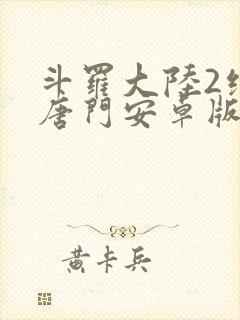 斗羅大陸2
唐門安卓版
黃卡兵